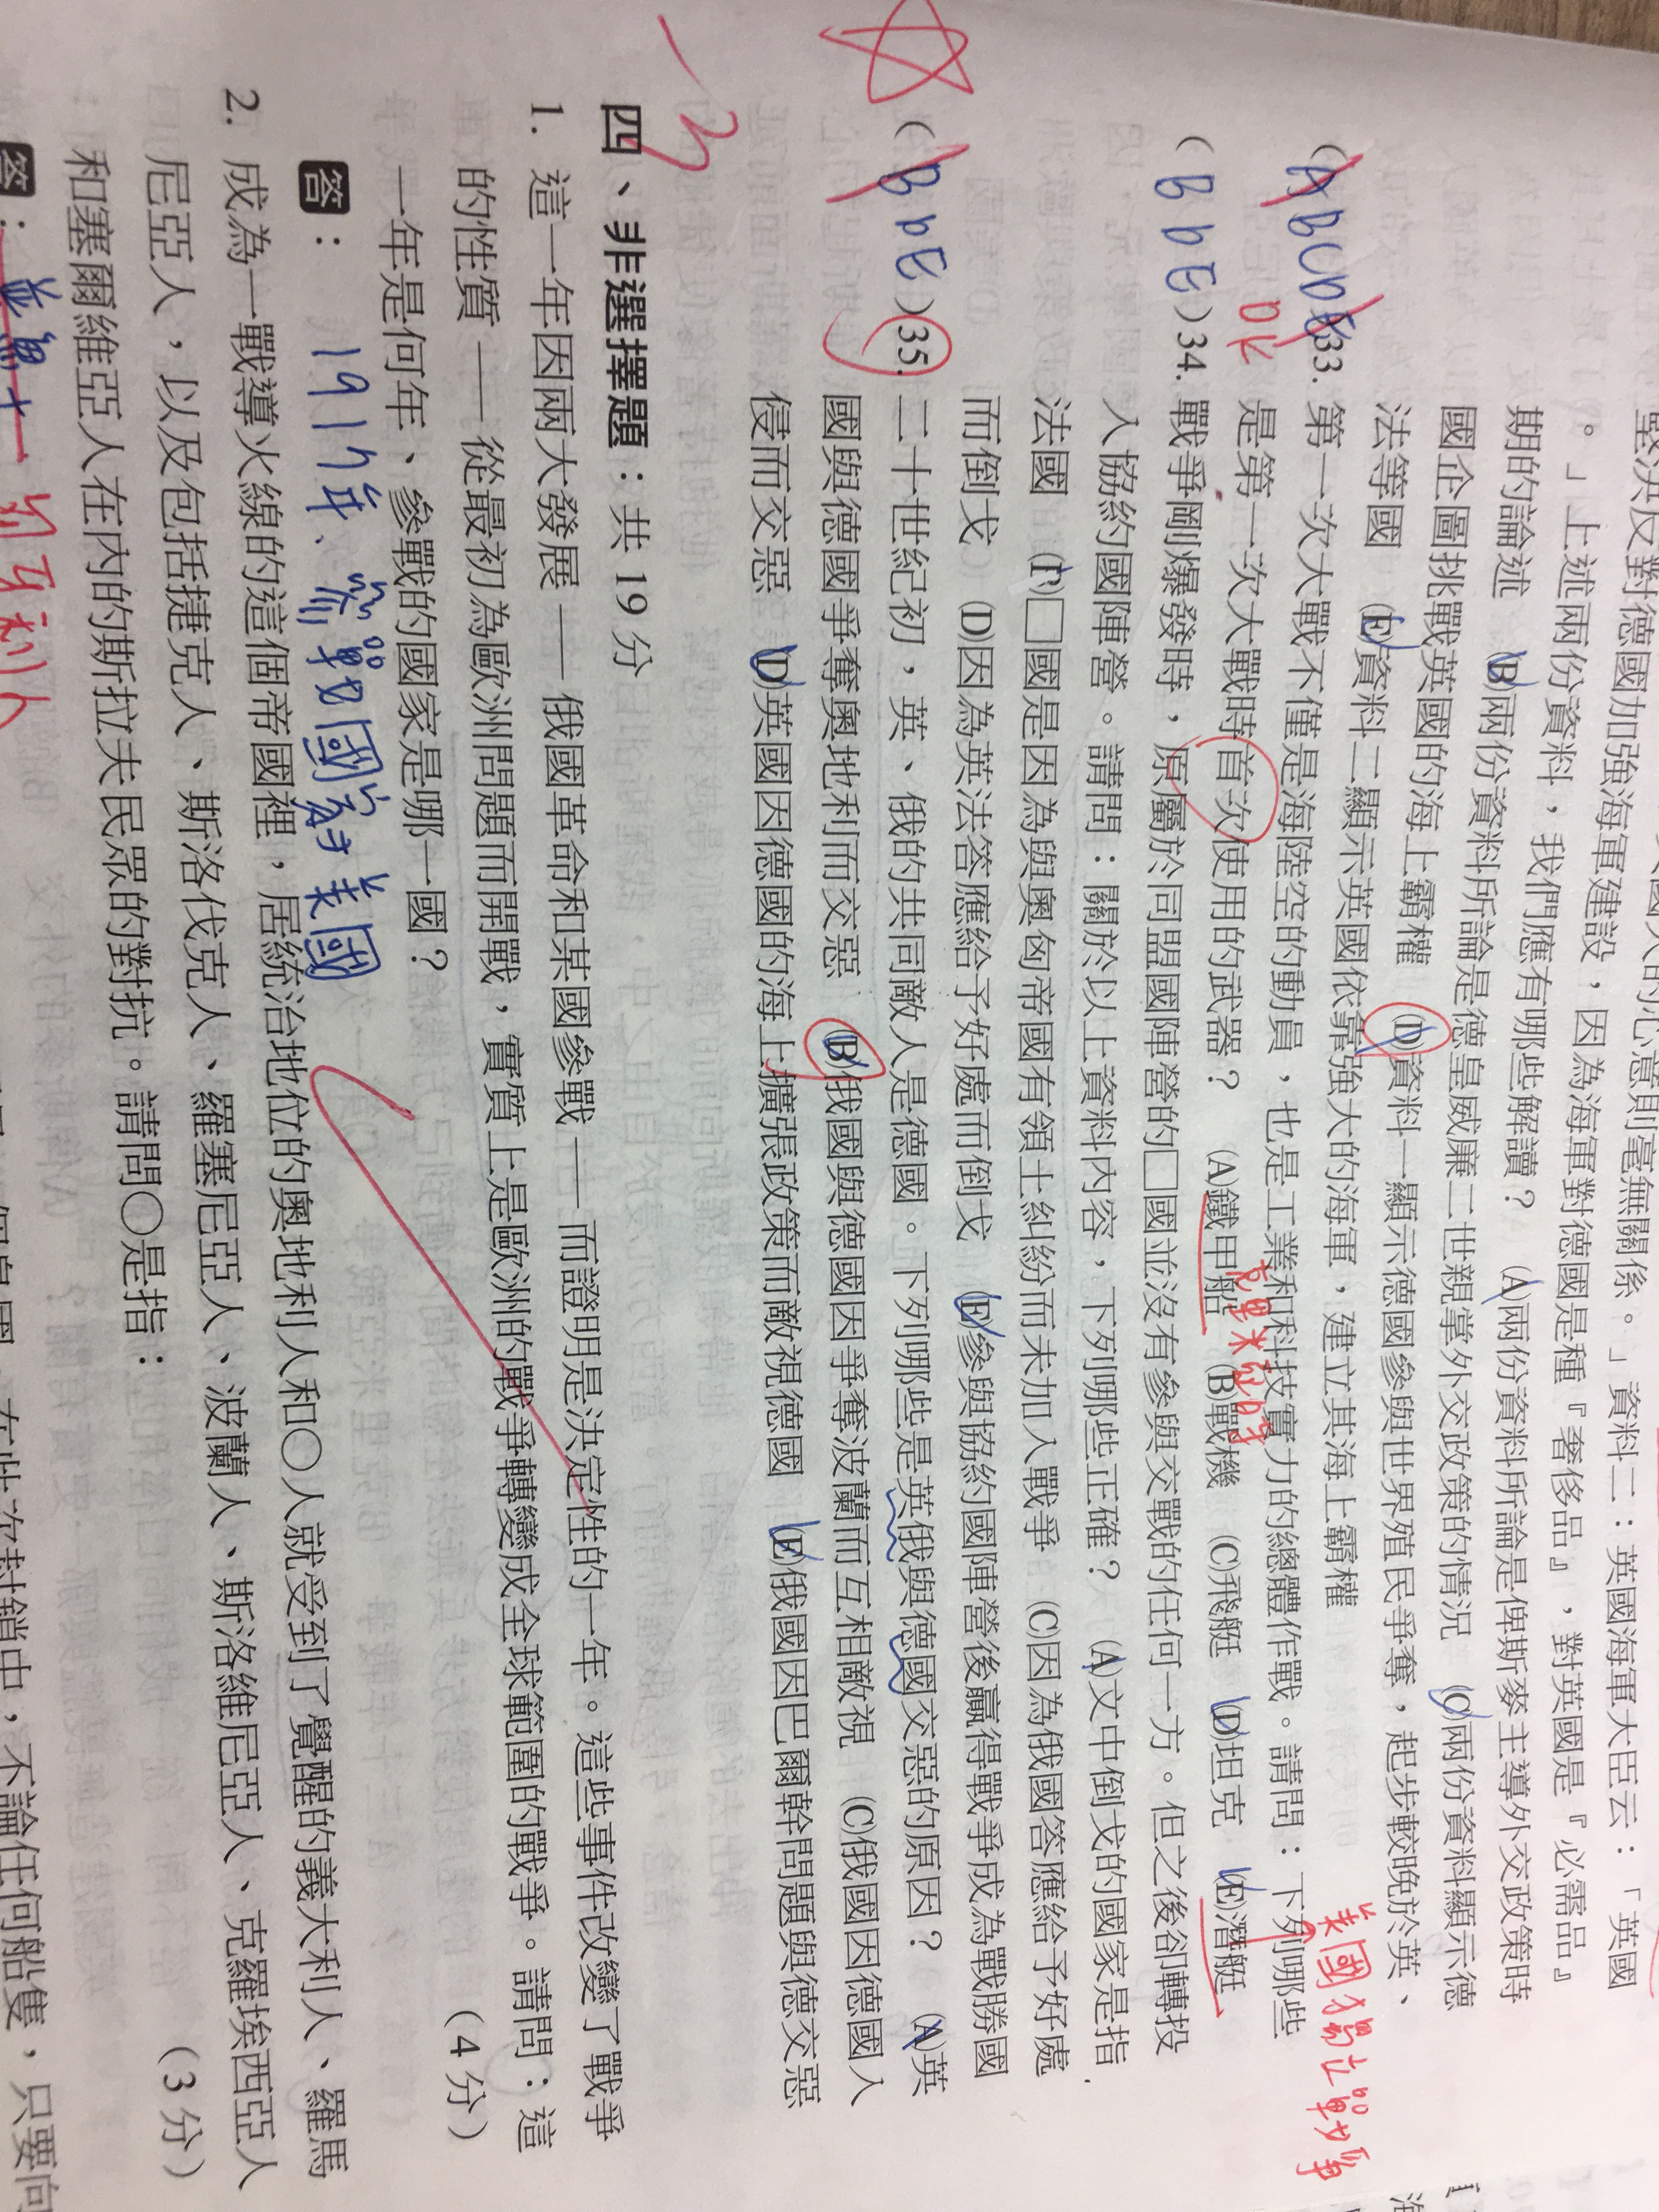 堅決反對德國加強海軍建設，因為海軍對德國是種『奢侈品』，對英國是『必需品』
。」上述兩份資料，我們應有哪些解讀？ (A)兩份資料所論是俾斯麥主導外交政策時
期的論述 (B)兩份資料所論是德皇威廉二世親掌外交政策的情況 (C)兩份資料顯示德
國企圖挑戰英國的海上霸權 (D)資料一顯示德國參與世界殖民爭奪，起步較晚於英、
法等國 (E)資料二顯示英國依靠強大的海軍，建立其海上霸權
美國獨立戰爭
(ABCDE)33. 第一次大戰不僅是海陸空的動員，也是工業和科技實力的總體作戰。請問：下列哪些
DE
是第一次大戰時首次使用的武器？ (A)鐵甲船 (B)戰機 (C)飛艇 (D)坦克 (E)潛艇
(BDE)34. 戰爭剛爆發時，原屬於同盟國陣營的□國並沒有參與交戰的任何一方。但之後卻轉投
入協約國陣營。請問：關於以上資料內容，下列哪些正確？ (A)文中倒戈的國家是指
法國 (B)□國是因為與奧匈帝國有領土糾紛而未加入戰爭 (C)因為俄國答應給予好處
而倒戈 (D)因為英法答應給予好處而倒戈 (E)參與協約國陣營後贏得戰爭成為戰勝國
(BDE)35. 二十世紀初，英、俄的共同敵人是德國。下列哪些是英俄與德國交惡的原因？ (A)英
國與德國爭奪奧地利而交惡 (B)俄國與德國因爭奪波蘭而互相敵視 (C)俄國因德國入
侵而交惡 (D)英國因德國的海上擴張政策而敵視德國 (E)俄國因巴爾幹問題與德交惡
-3
四、非選擇題：共 19 分
1. 這一年因兩大發展——俄國革命和某國參戰——而證明是決定性的一年。這些事件改變了戰爭
的性質——從最初為歐洲問題而開戰，實質上是歐洲的戰爭轉變成全球範圍的戰爭。請問：這
一年是何年、參戰的國家是哪一國？ （4 分）
答：1917年、參戰國家為美國
2. 成為一戰導火線的這個帝國裡，居統治地位的奧地利人和○人就受到了覺醒的義大利人、羅馬
尼亞人，以及包括捷克人、斯洛伐克人、羅塞尼亞人、波蘭人、斯洛維尼亞人、克羅埃西亞人
和塞爾維亞人在內的斯拉夫民眾的對抗。請問○是指： （3 分）
答： 匈牙利人
在此次封鎖中，不論任何船隻，只要向